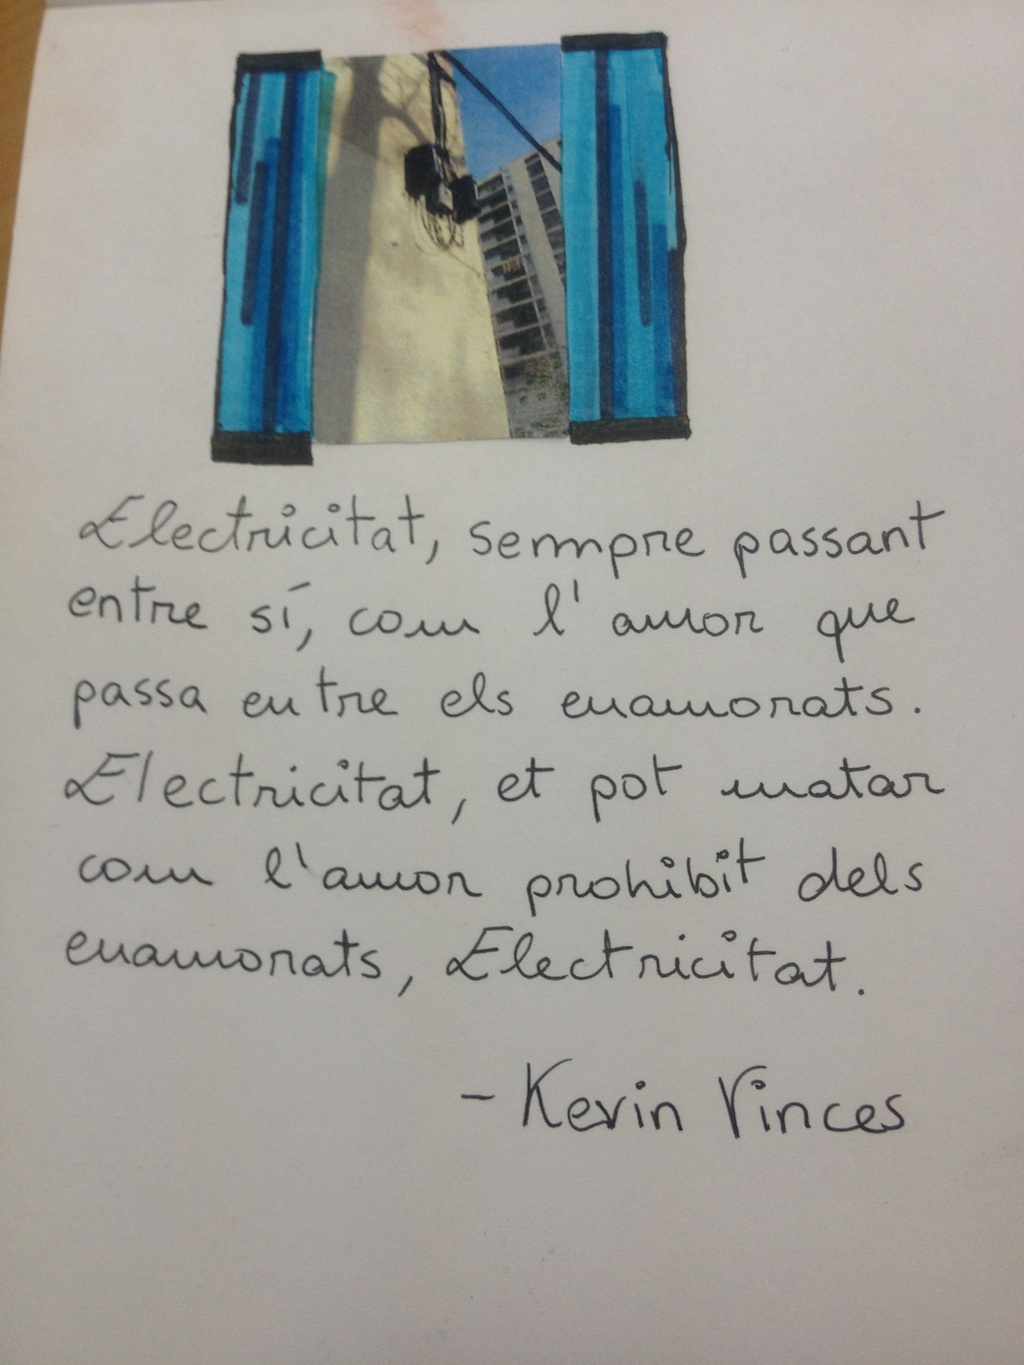 Electricitat, sempre passant
entre sí, com l'amor que
passa entre els enamorats.
Electricitat, et pot matar
com l'amor prohibit dels
enamorats, Electricitat.
- Kevin Vinces